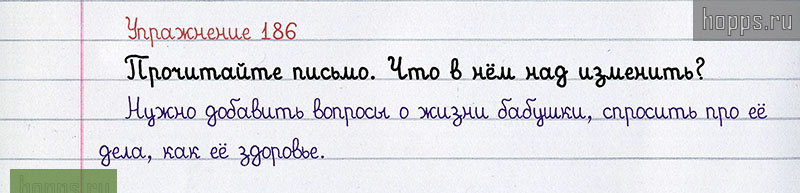 hopps.ru
Упражнение 186
Прочитайте письмо. Что в нём над изменить?
Нужно добавить вопросы о жизни бабушки, спросить про её
дела, как её здоровье.
hopps.ru